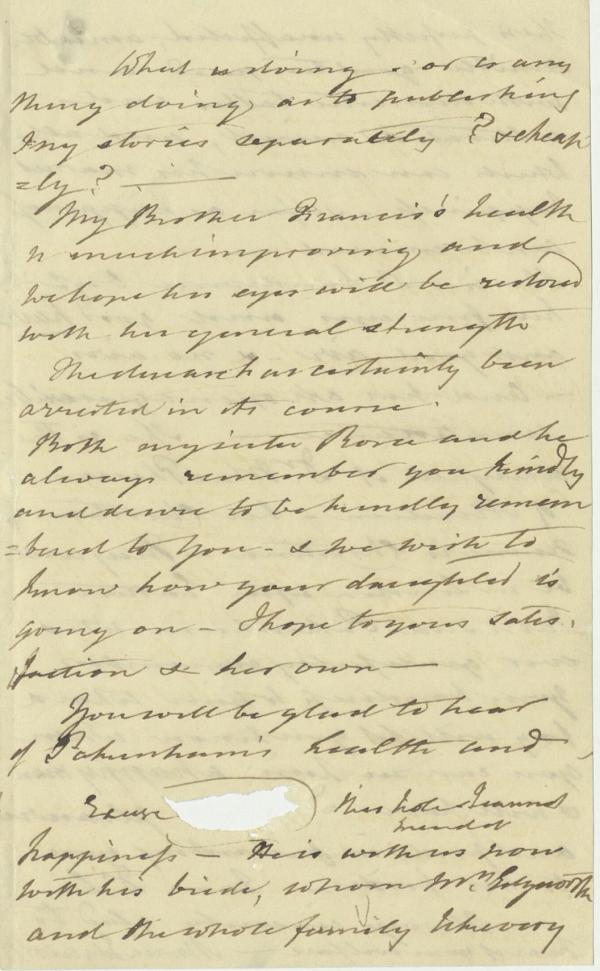 What is doing – or is any
thing doing, as to publishing
my stories separately? & cheap
=ly? —
My Brother Francis's health
is much improving, and
we hope his eyes will be restored
with his general strength
The disease has certainly been
arrested in its course.
Both my sister Rose and he
always remember you kindly
and desire to be kindly remem
=bered to you – & we wish to
know how your daughter is
going on – I hope to your satis.
faction & her own —
You will be glad to hear
of Pakenham's health and
Excuse this hole I cannot
mend it
happiness – He is with us now
with his bride, whom Mrs. Edgeworth
and the whole family like very